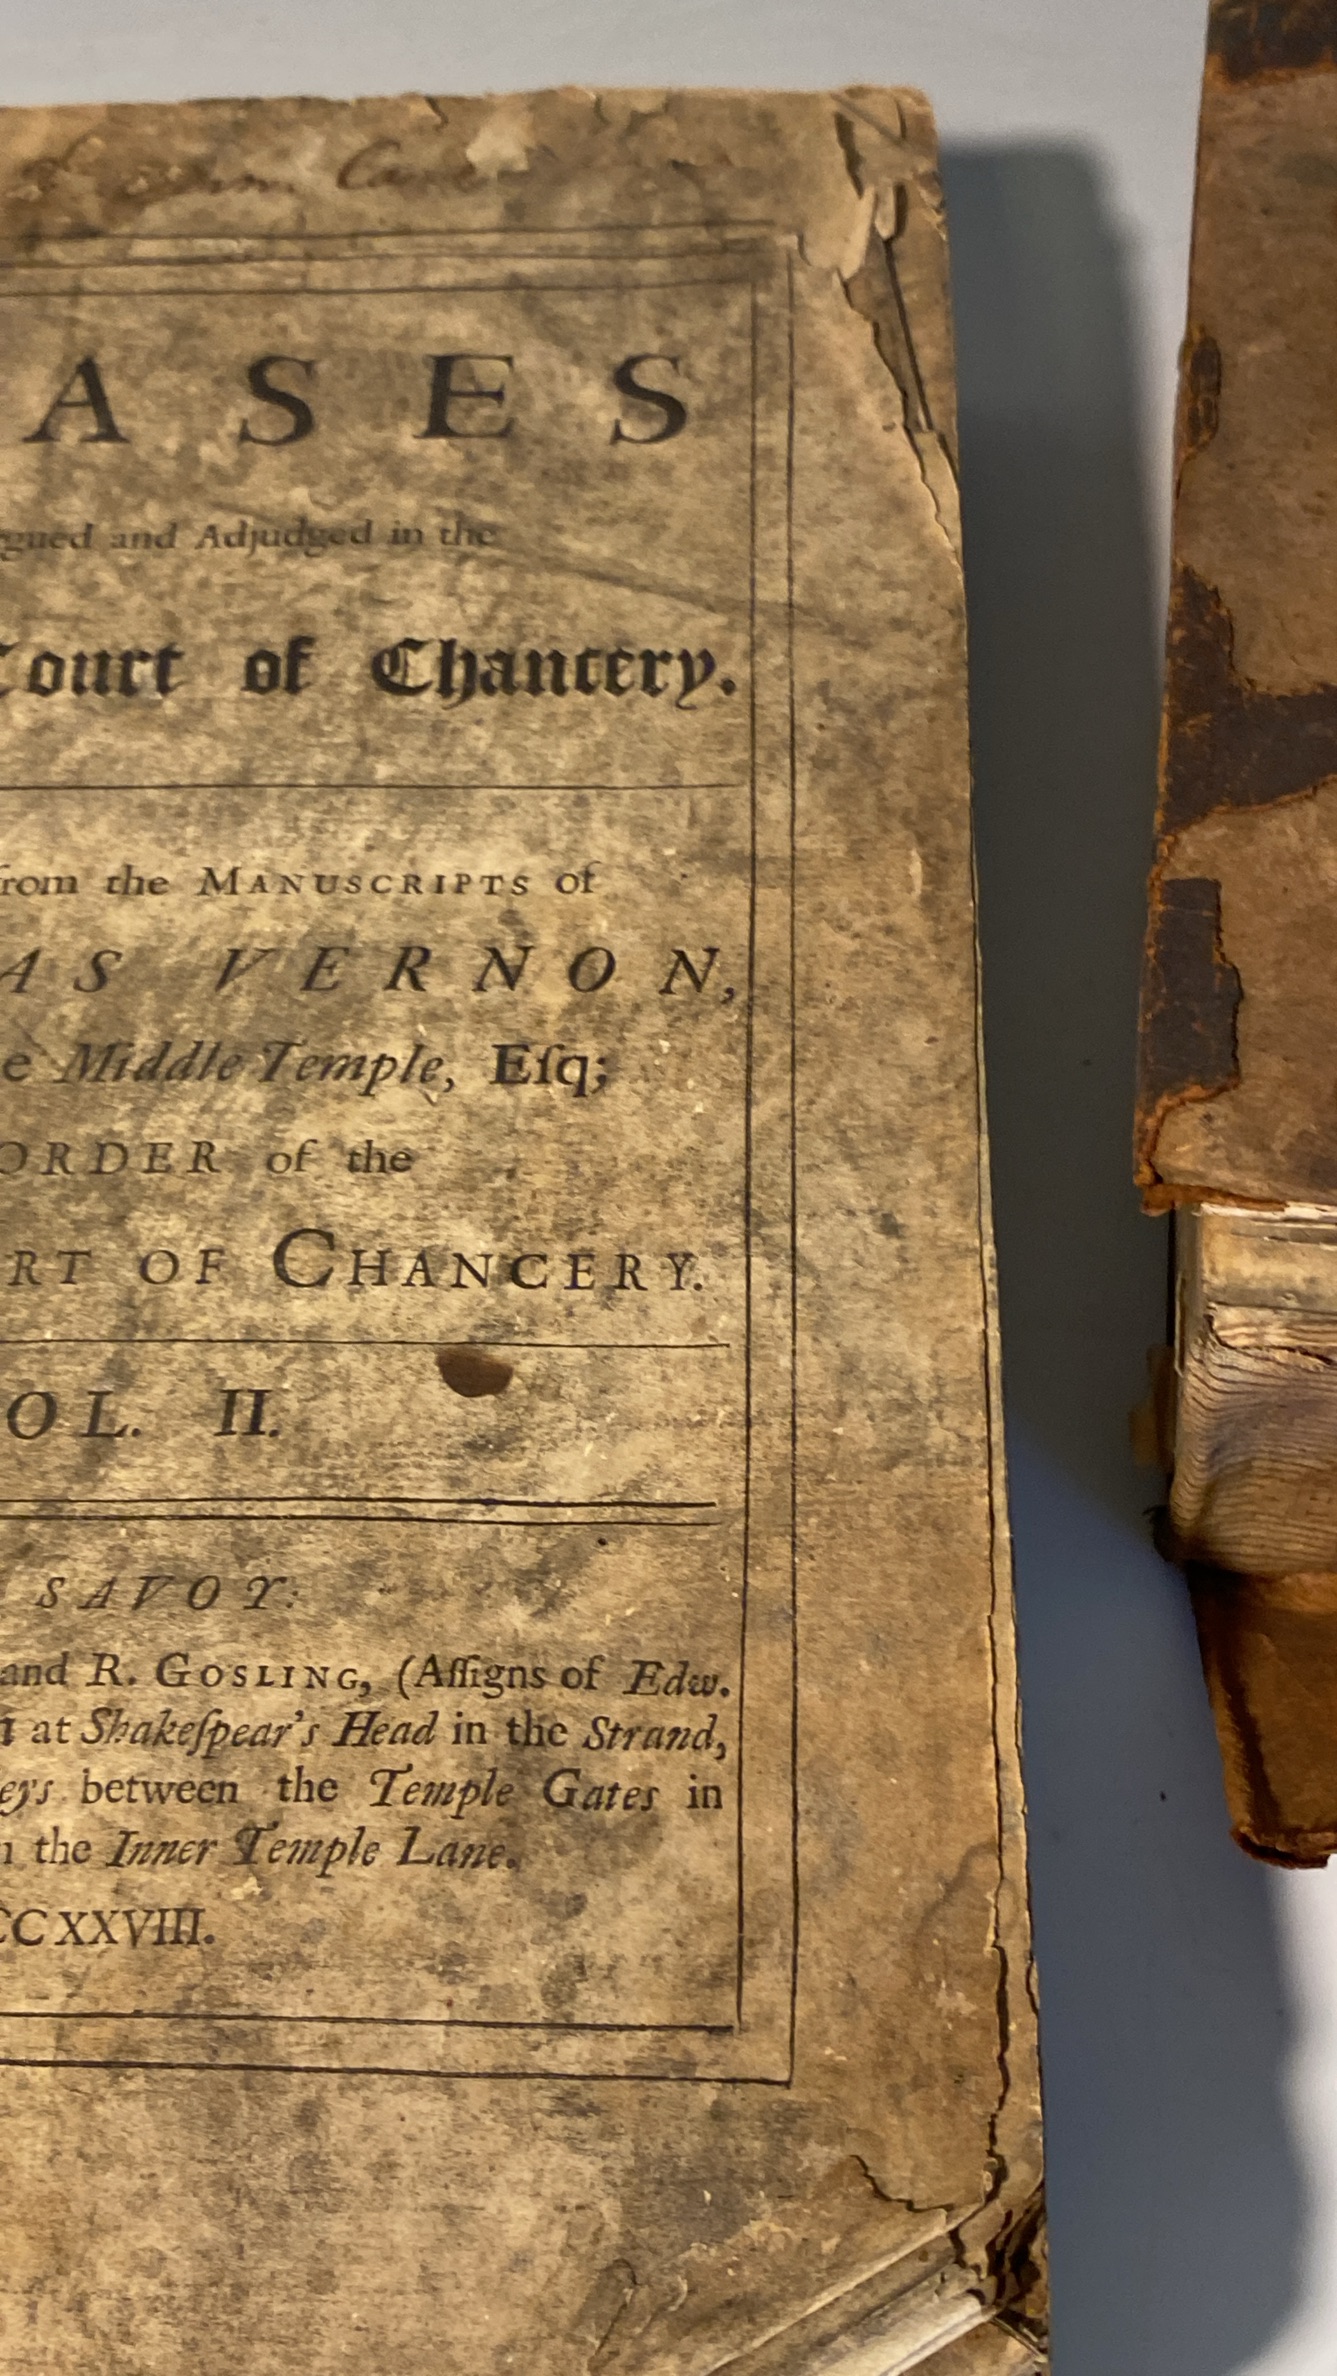 ASES
gued and Adjudged in the
Court of Chancery.
from the MANUSCRIPTS of
AS VERNON,
e Middle Temple, Eſq;
ORDER of the
RT OF CHANCERY.
OL. II.
SAVOY:
and R. GOSLING, (Aſſigns of Edw.
at Shakeſpear's Head in the Strand,
eys between the Temple Gates in
the Inner Temple Lane.
CCXXVIII.